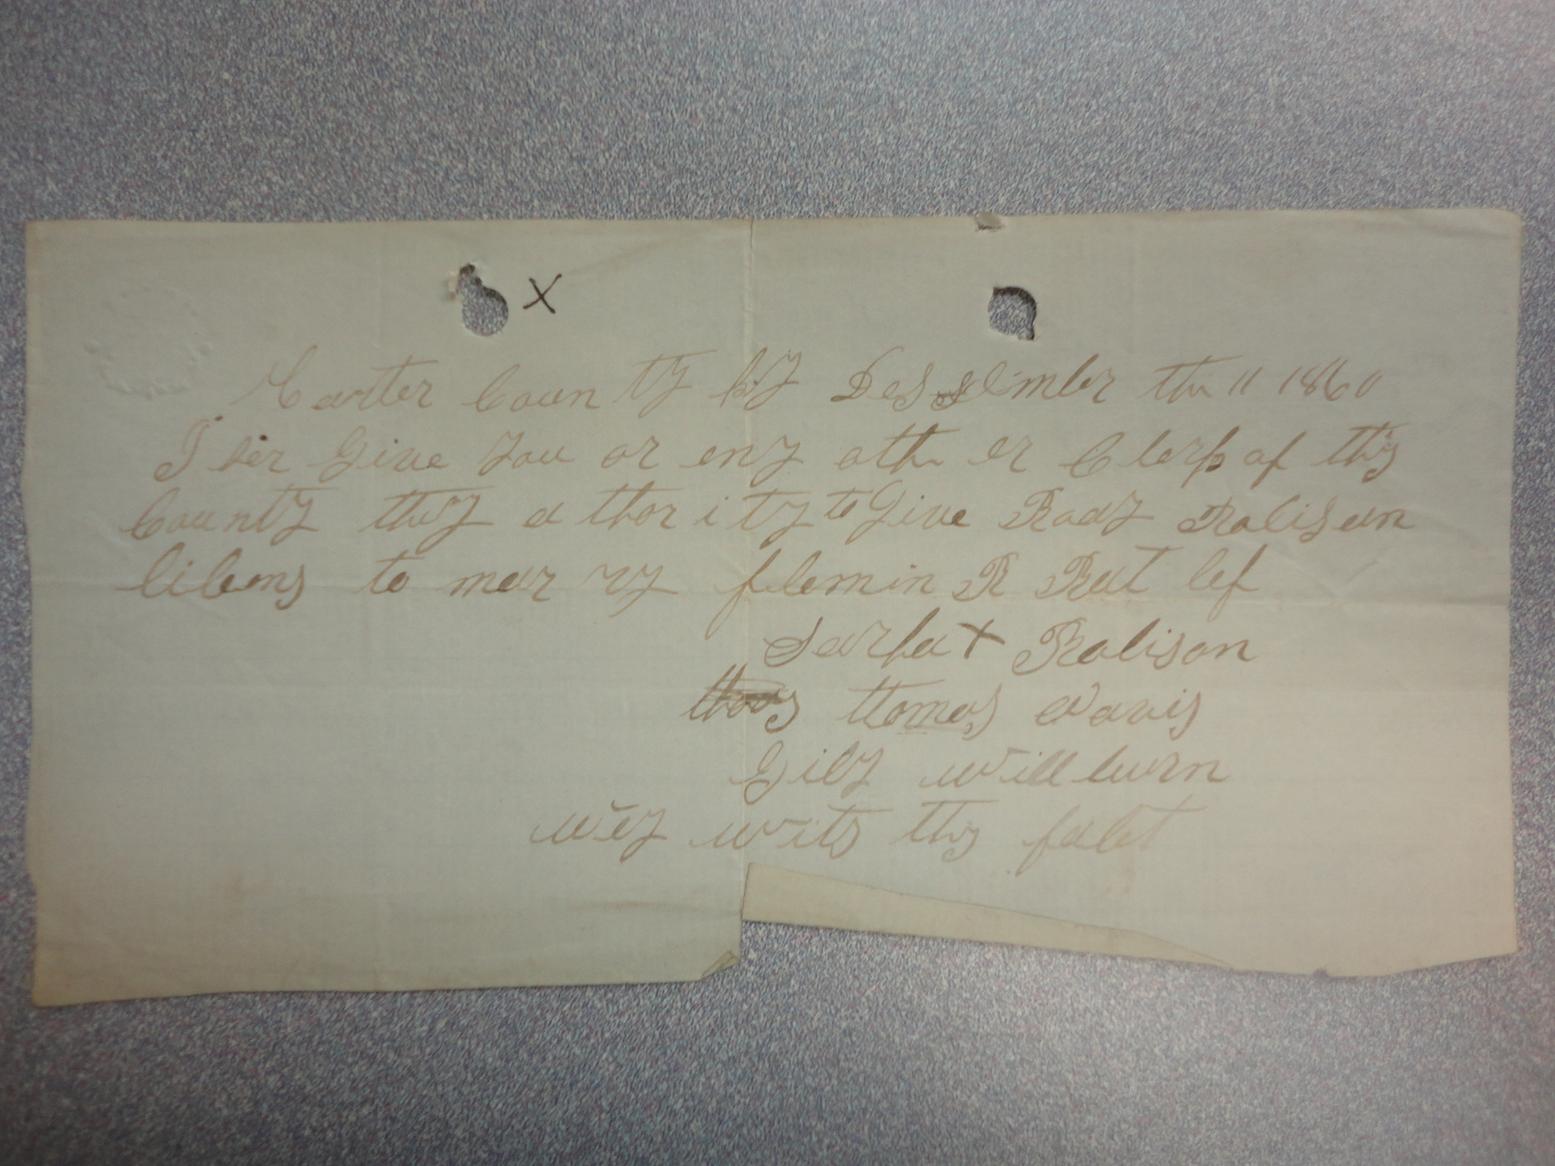 X
Carter County ky Dessember the 11 1860
I her give you or eny other Clerk of this
County this athority to give Roay Rolison
libens to marry flemin R Ratlef
Sarha X Rolison
thos thomas davis
Gily Willburn
wey wits this fakt